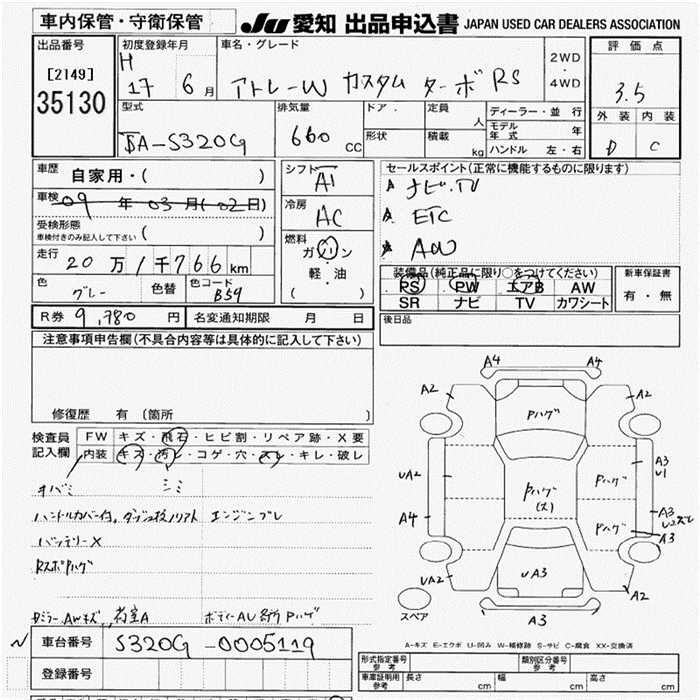 車内保管・守衛保管
JU 愛知 出品申込書 JAPAN USED CAR DEALERS ASSOCIATION
出品番号
[2149]
35130
初度登録年月
H 17 6 月
車名・グレード
アトレーW カスタム ターボ RS
2WD
・
4WD
評価点
3.5
外装 内装
D C
型式
TA-S320G
排気量
660 CC
ドア
形状
定員 人
積載 kg
ディーラー・並行
モデル年式 年
ハンドル 左・右
車歴
自家用・( )
車検
09 年 03 月( 02 日)
受検形態
車検付きのみ記入して下さい ( )
走行
20 万 1 千 766 km
色 グレー
色替
色コード B59
R券 9,780 円
名変通知期限 月 日
シフト
AT
冷房
AC
燃料
ガソリン
軽・油
( )
セールスポイント(正常に機能するものに限ります)
ナビ・TV
ETC
AW
装備品(純正品に限り○をつけてください)
PS PW エアB AW
SR ナビ TV カワシート
新車保証書
有・無
後日品
注意事項申告欄(不具合内容等は具体的に記入して下さい)
修復歴 有 (箇所 )
検査員
記入欄
FW キズ・飛石・ヒビ割・リペア跡・X要
内装 キズ・汚レ・コゲ・穴・スレ・キレ・破レ
シミ
エンジンブレ
バッテリーX
RスポPハゲ
AWキズ
A4 A4
A2 A2
Pハゲ
UA2
Pハゲ
(大)
Pハゲ
A3
U1
A4
Pハゲ
A3
A3
UA2
UA3
A2
スペア
A3
A-キズ E-エクボ U-凹み W-補修跡 S-サビ C-腐食 XX-交換済
車台番号
S320G-0005119
登録番号
形式指定番号
参考
類別区分番号
参考
車庫証明用
参考
長さ cm
幅 cm
高さ cm